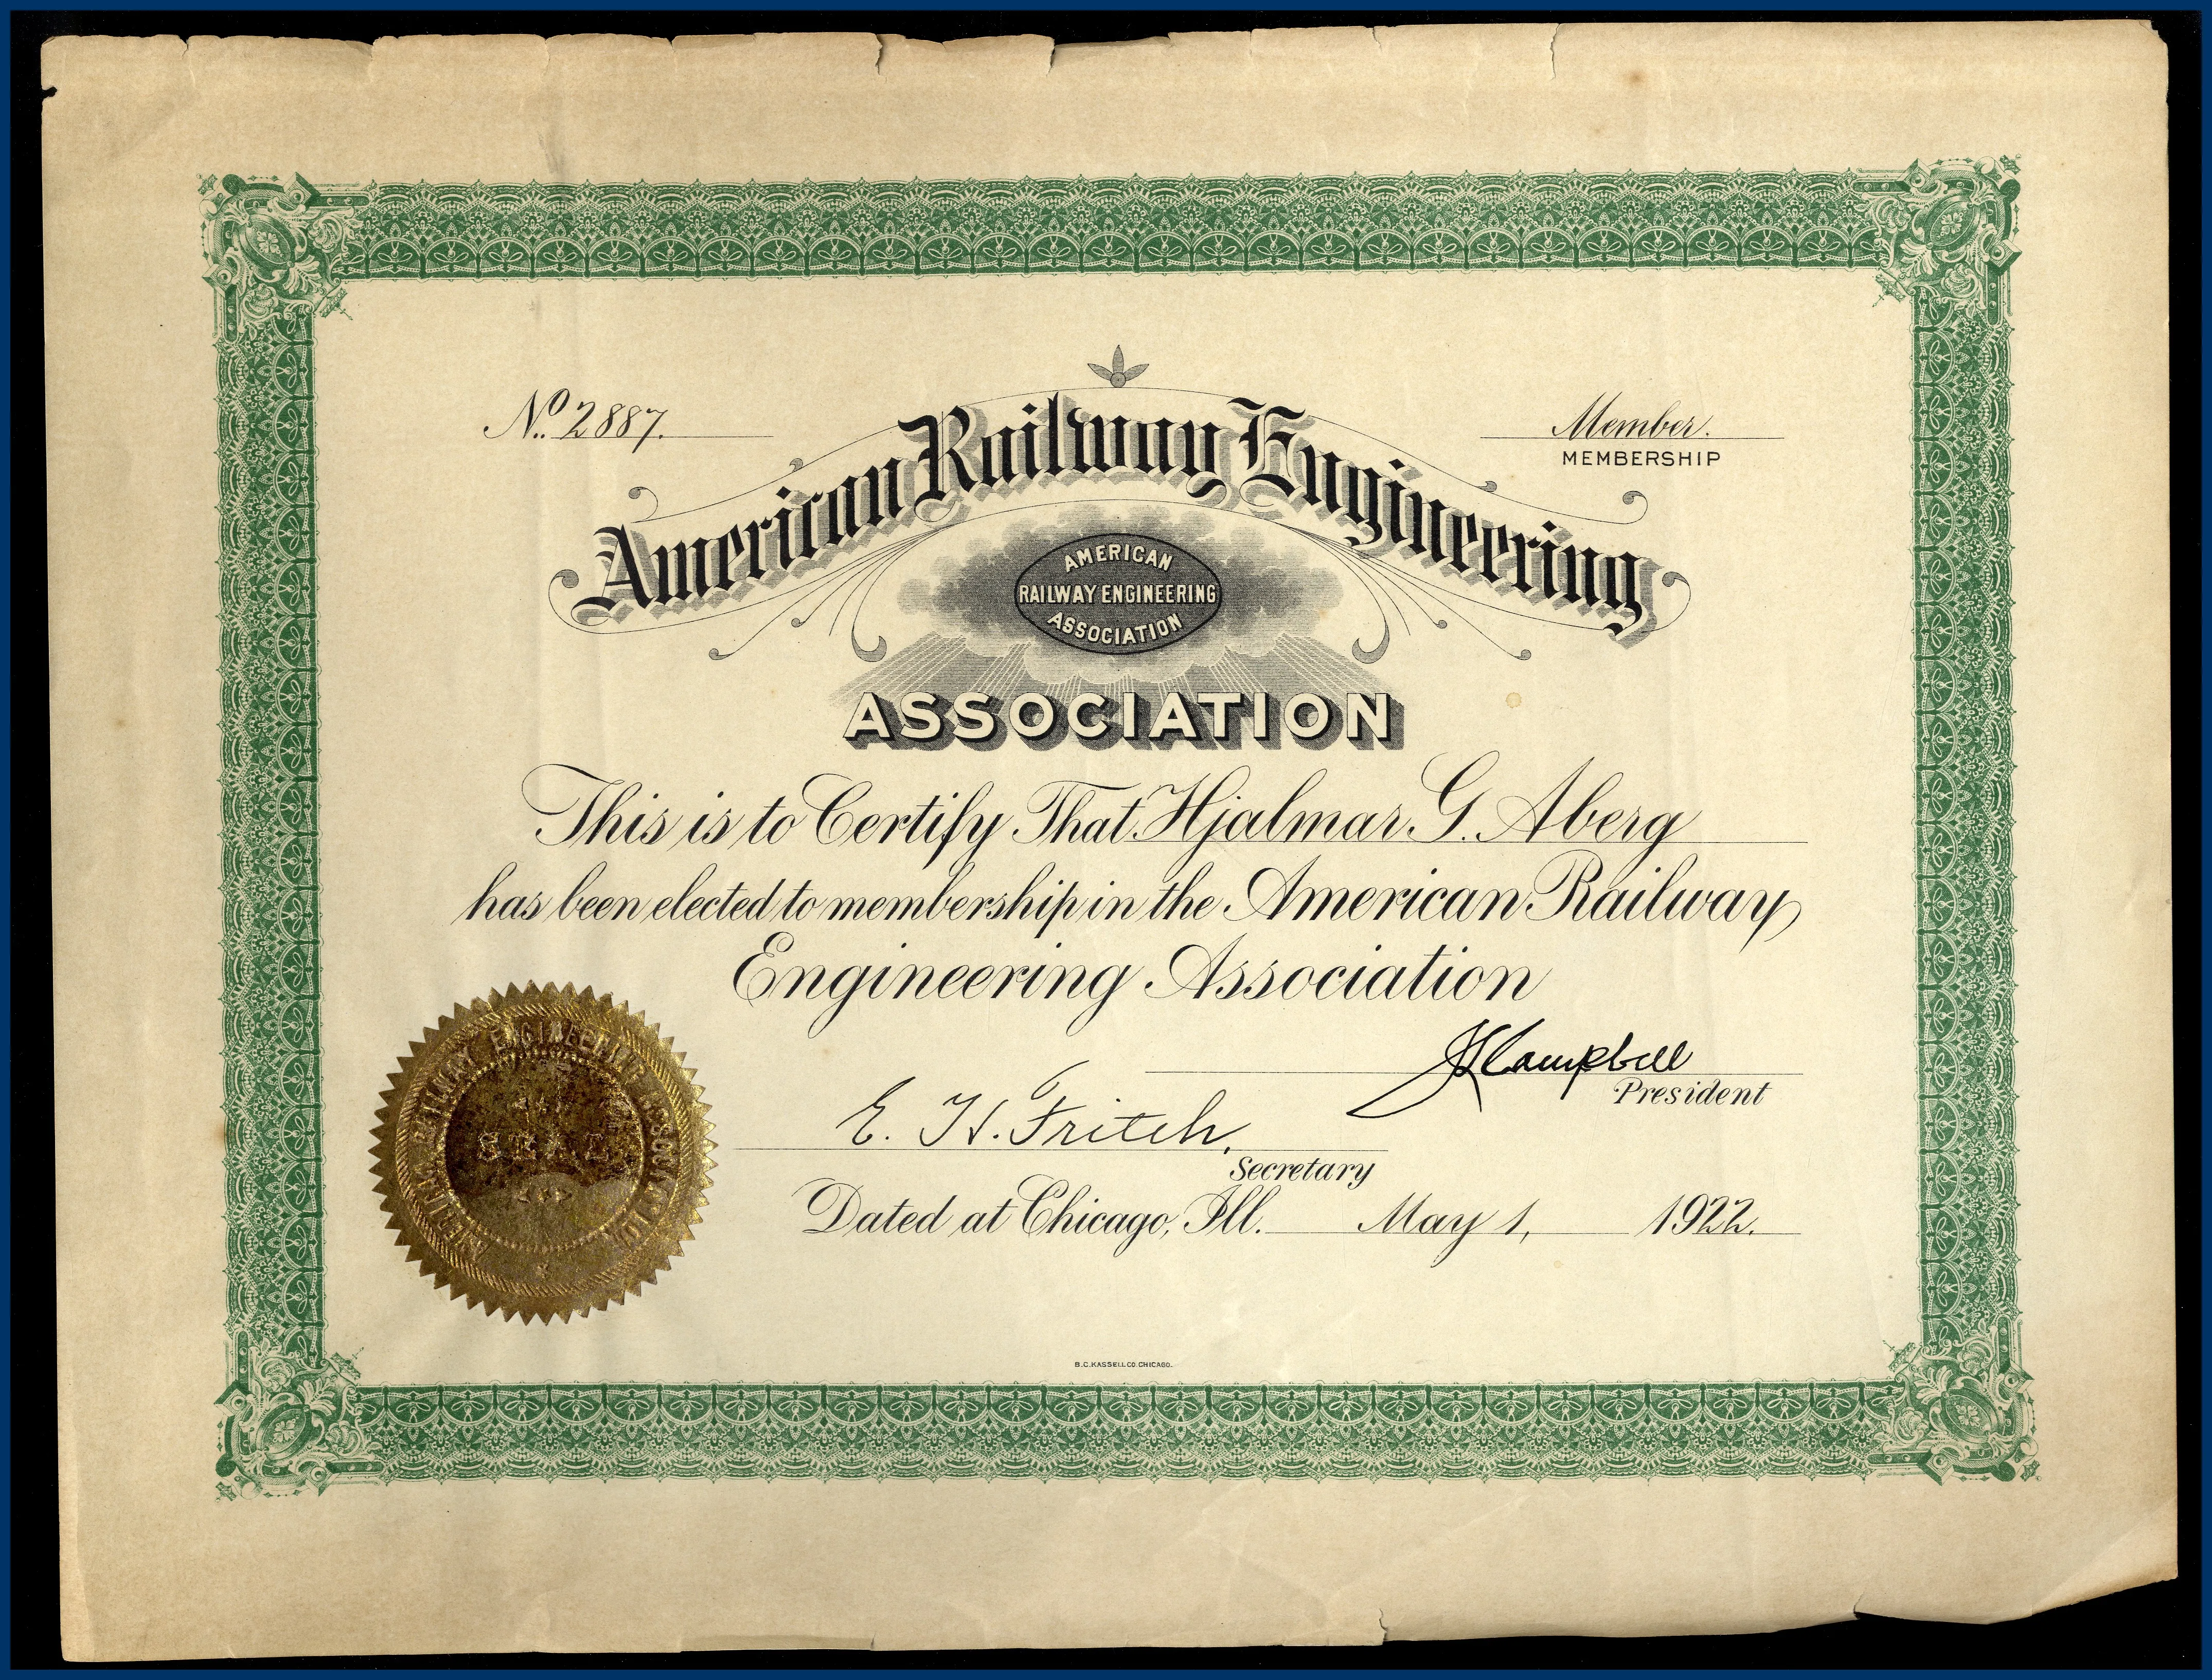 No. 2887.
Member.
MEMBERSHIP
American Railway Engineering
AMERICAN
RAILWAY ENGINEERING
ASSOCIATION
ASSOCIATION
This is to Certify That Hjalmar G. Aberg
has been elected to membership in the American Railway
Engineering Association
J L Campbell
President
E. H. Fritch.
Secretary
Dated at Chicago, Ill. May 1, 1922.
AMERICAN RAILWAY ENGINEERING ASSOCIATION
SEAL
B.C. KASSELL CO. CHICAGO.